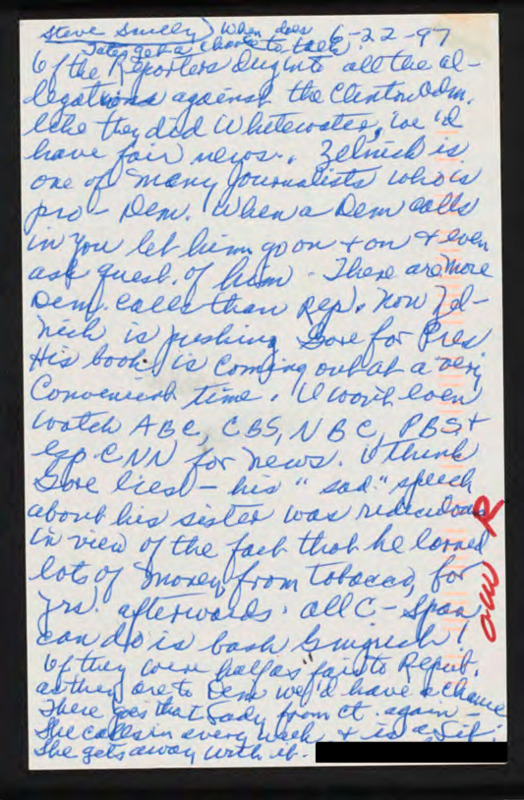 Steve Scully) When does 6-22-97
Tate get a chance to talk?
If the Reporters dug into all the al-
legations against the Clinton Adm.
like they did Whitewater, we'd
have fair news. Zelnick is
one of many journalists who is
pro-Dem. When a Dem calls
in you let him go on + on + even
ask quest. of him - There are more
Dem. calls than Rep. Now Zel-
nick is pushing Gore for Pres
His book is coming out at a very
Convenient time. I won't even
watch ABC, CBS, NBC, PBS +
esp CNN for news. I think
Gore lies - his "sad" speech
about his sister was ridiculous
in view of the fact that he earned
lots of money from tobacco, for
yrs. afterwards. All C-Span
can do is bash Gingrich!
If they were half as fair to Repub.
as they are to Dem we'd have a chance
There goes that Lady from Ct. again -
She calls in every week + is a
She gets away with it.